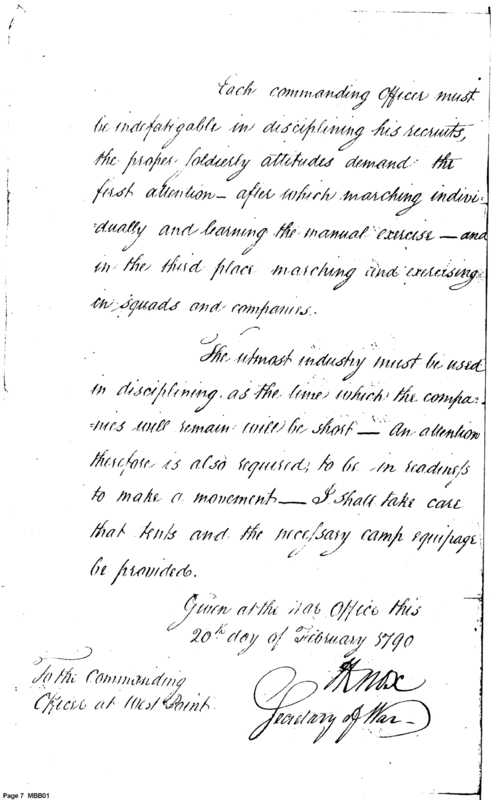 Each commanding Officer must
be indefatigable in disciplining his recruits,
the proper soldierly attitudes demand the
first attention — after which marching indivi=
=dually and learning the manual exercise — and
in the third place marching and exercising
in squads and companies.
The utmost industry must be used
in disciplining as the time which the compa=
=nies will remain will be short — An attention
therefore is also required, to be in readiness
to make a movement — I shall take care
that tents and the necessary camp equipage
be provided.
Given at the War Office this
20th day of February 1790
To the Commanding
Officer at West Point
HKnox
Secretary of War
Page 7 MBB01